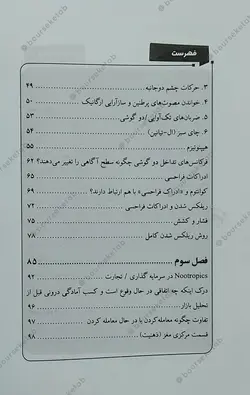 فهرست
۳. حرکات چشم دوجانبه ۴۹
۴. خواندن مصوت‌های پرطنین و سازآرایی ارگانیک ۵۰
۵. ضربان‌های تک‌آوایی/دو گوشی ۵۳
۶. چای سبز (ال-تیانین) ۵۴
هیپنوتیزم ۵۵
فرکانس‌های تداخل دو گوشی چگونه سطح آگاهی را تغییر می‌دهند؟ ۶۲
ادراکات فراحسی ۶۵
کوانتوم و «ادراک فراحسی» با هم ارتباط دارند؟ ۶۹
ریلکس شدن و ادراکات فراحسی ۷۲
فشار و کشش ۷۵
روش ریلکس شدن کامل ۷۸
فصل سوم ۸۵
Nootropics در سرمایه گذاری / تجارت ۹۲
درک اینکه چه اتفاقی در حال وقوع است و کسب آمادگی درونی قبل از
تحلیل بازار ۹۶
تفاوت چگونه معامله‌کردن با در حال معامله کردن ۹۷
قسمت مرکزی مغز (ذهنیت) ۹۸
bourseketab